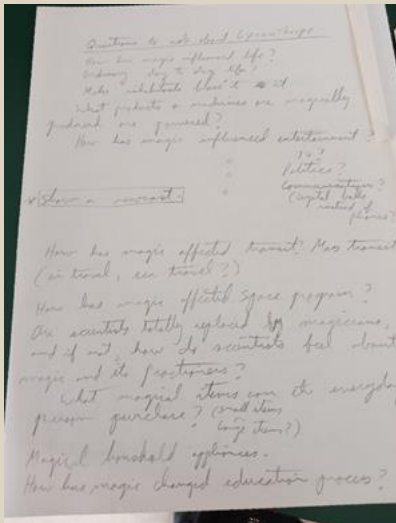 Questions to ask about
How has magic influenced life?
Ordinary day to day life?
Make inhabitants blasé to it
What products or machines are magically
produced or powered?
How has magic influenced entertainment?
" T.V.?
" Politics?
" Communications?
(crystal balls
instead of
phones?)
Show a newscast.
How has magic affected transit? Mass transit
(air travel, sea travel?)
How has magic affected space program?
Are scientists totally replaced by magicians,
and if not, how do scientists feel about
magic and its practioners?
What magical items can the everyday
person purchase? (small items
large items?)
Magical household appliances.
How has magic changed education process?